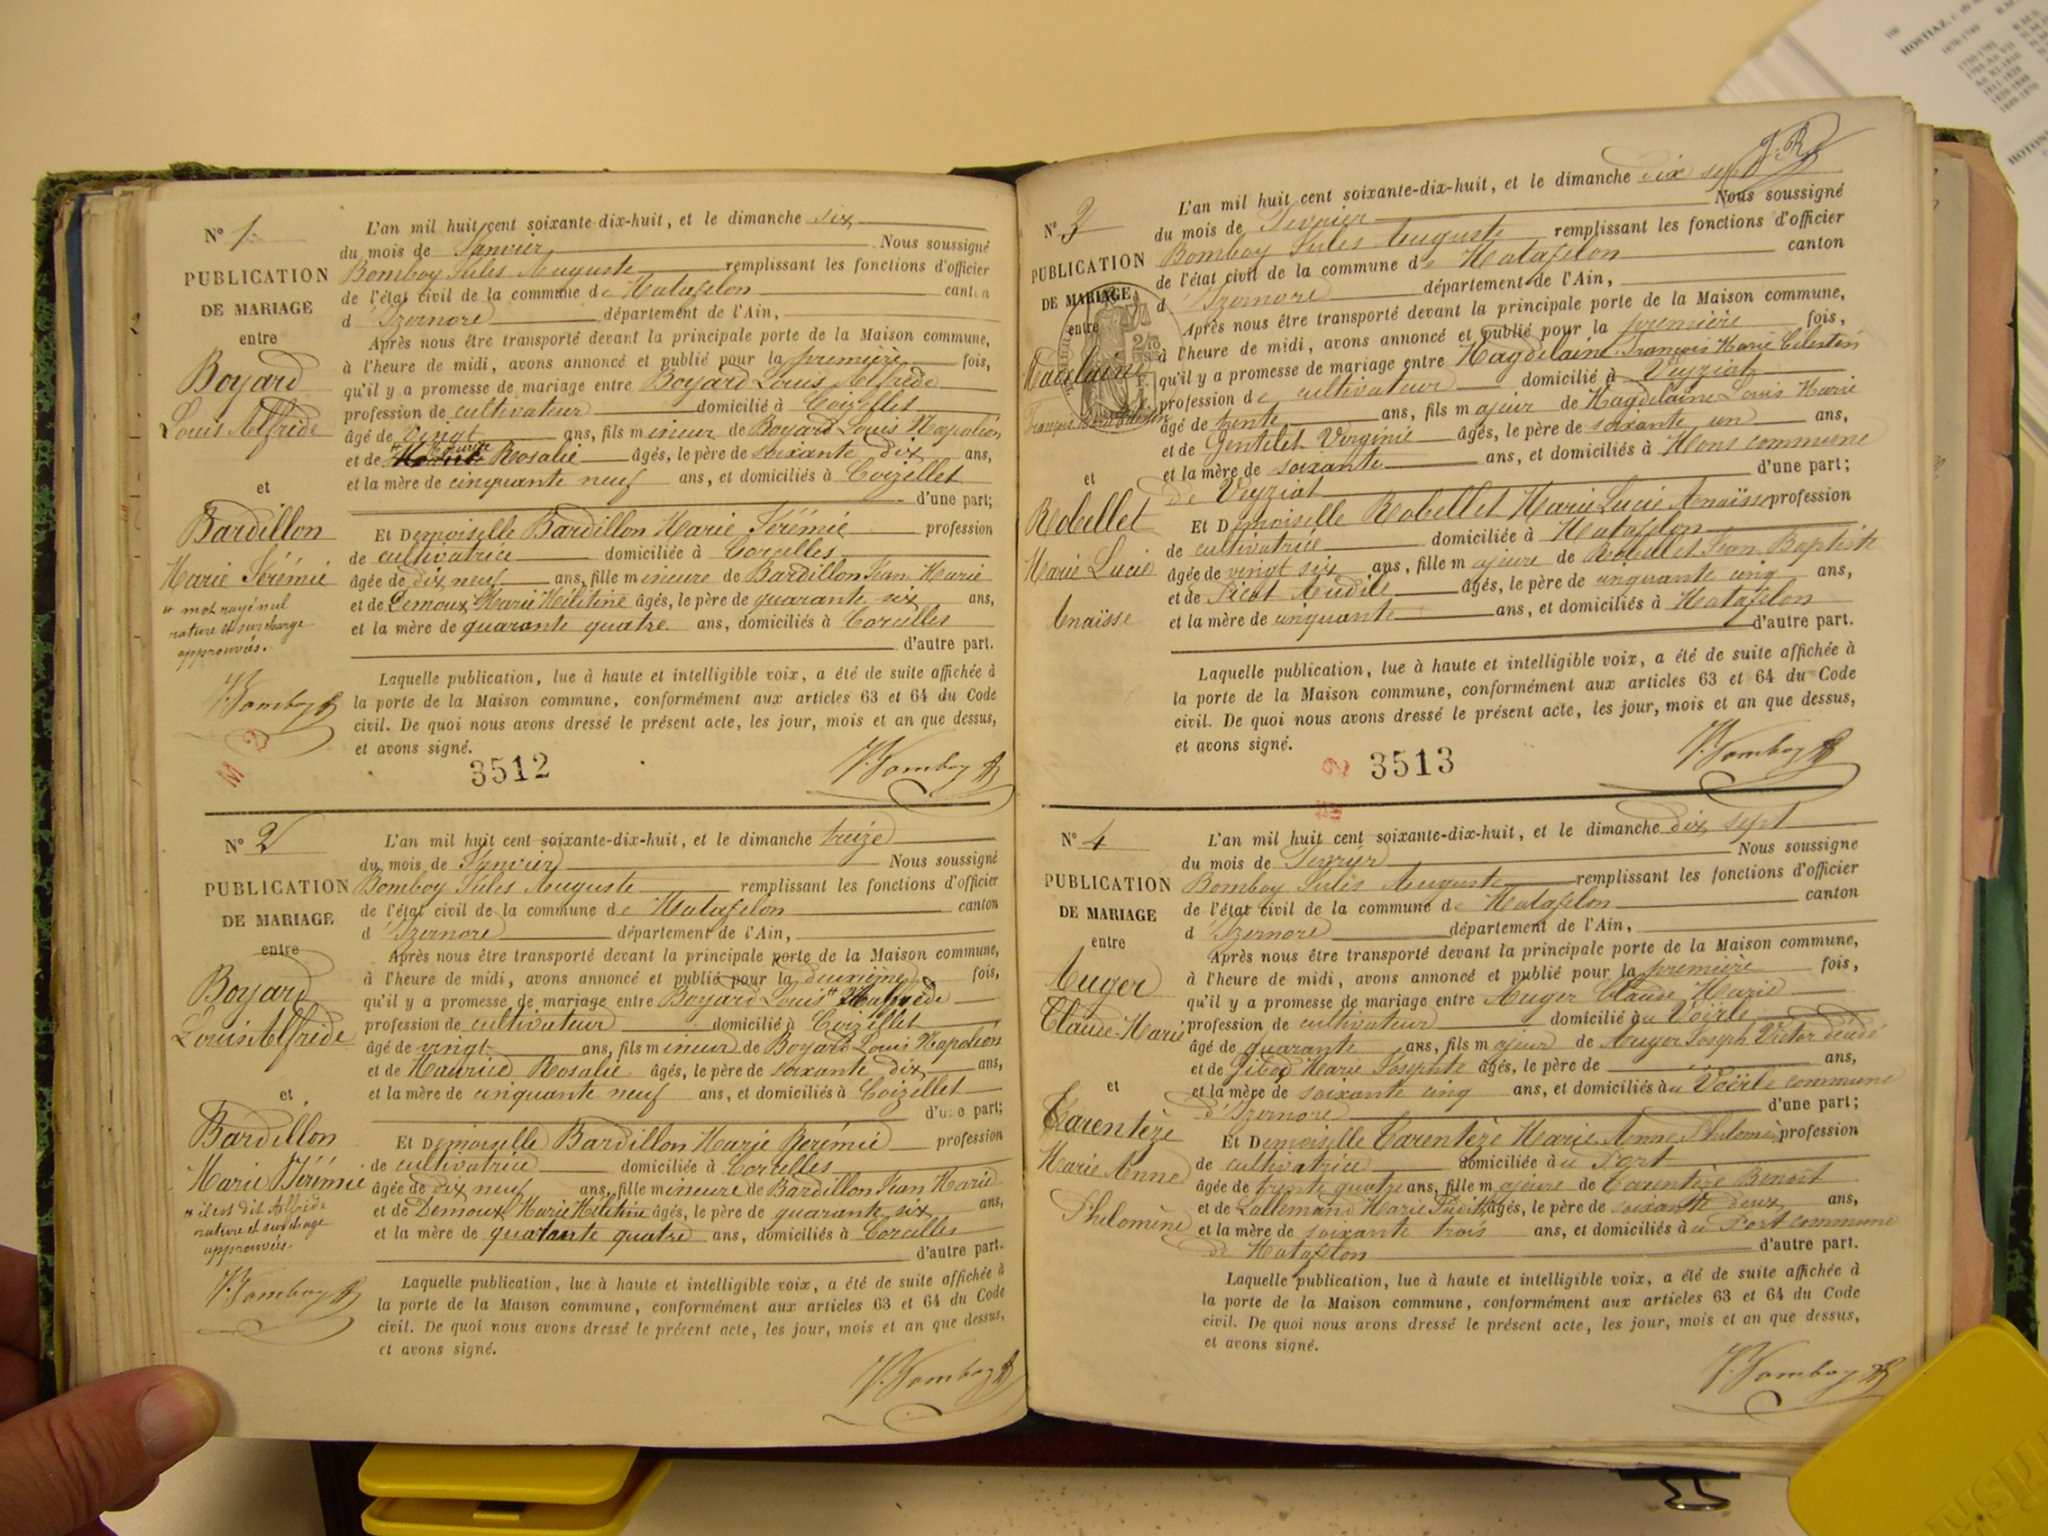 N° 1
PUBLICATION
DE MARIAGE
entre
Boyard
Louis Alfrède
et
Bardillon
Marie Jérémie
mot rayé nul
rature et surcharge
approuvées.
L'an mil huit cent soixante-dix-huit, et le dimanche six
du mois de Janvier Nous soussigné
Bomboy Jules Auguste remplissant les fonctions d'officier
de l'état civil de la commune de Matafelon canton
d'Izernore département de l'Ain,
Après nous être transporté devant la principale porte de la Maison commune,
à l'heure de midi, avons annoncé et publié pour la première fois,
qu'il y a promesse de mariage entre Boyard Louis Alfrède
profession de cultivateur domicilié à Coizellet
âgé de vingt ans, fils mineur de Boyard Louis Napoléon
et de Rosalie âgés, le père de soixante dix ans,
et la mère de cinquante neuf ans, et domiciliés à Coizellet
d'une part;
Et Demoiselle Bardillon Marie Jérémie profession
de cultivatrice domiciliée à Corcelles
âgée de dix neuf ans, fille mineure de Bardillon Jean Marie
et de Demoux Marie Mélitine âgés, le père de quarante six ans,
et la mère de quarante quatre ans, domiciliés à Corcelles
d'autre part.
Laquelle publication, lue à haute et intelligible voix, a été de suite affichée à
la porte de la Maison commune, conformément aux articles 63 et 64 du Code
civil. De quoi nous avons dressé le présent acte, les jour, mois et an que dessus,
et avons signé.
J. Bomboy
M 2
3512
N° 2
PUBLICATION
DE MARIAGE
entre
Boyard
Louis Alfrède
et
Bardillon
Marie Jérémie
il est dit Alfrède
rature et surcharge
approuvées.
L'an mil huit cent soixante-dix-huit, et le dimanche treize
du mois de Janvier Nous soussigné
Bomboy Jules Auguste remplissant les fonctions d'officier
de l'état civil de la commune de Matafelon canton
d'Izernore département de l'Ain,
Après nous être transporté devant la principale porte de la Maison commune,
à l'heure de midi, avons annoncé et publié pour la deuxième fois,
qu'il y a promesse de mariage entre Boyard Louis
profession de cultivateur domicilié à Coizellet
âgé de vingt ans, fils mineur de Boyard Louis Napoléon
et de Rosalie âgés, le père de soixante dix ans,
et la mère de cinquante neuf ans, et domiciliés à Coizellet
d'une part;
Et Demoiselle Bardillon Marie Jérémie profession
de cultivatrice domiciliée à Corcelles
âgée de dix neuf ans, fille mineure de Bardillon Jean Marie
et de Demoux Marie Mélitine âgés, le père de quarante six ans,
et la mère de quarante quatre ans, domiciliés à Corcelles
d'autre part.
Laquelle publication, lue à haute et intelligible voix, a été de suite affichée à
la porte de la Maison commune, conformément aux articles 63 et 64 du Code
civil. De quoi nous avons dressé le présent acte, les jour, mois et an que dessus,
et avons signé.
J. Bomboy
N° 3
PUBLICATION
DE MARIAGE
entre
Magdelaine
et
Robellet
Marie Lucie
Anaïsse
L'an mil huit cent soixante-dix-huit, et le dimanche dix sept
du mois de Février Nous soussigné
Bomboy Jules Auguste remplissant les fonctions d'officier
de l'état civil de la commune de Matafelon canton
d'Izernore département de l'Ain,
Après nous être transporté devant la principale porte de la Maison commune,
à l'heure de midi, avons annoncé et publié pour la première fois,
qu'il y a promesse de mariage entre Magdelaine François Marie Célestin
profession de cultivateur domicilié à Veyziat
âgé de trente ans, fils majeur de Magdelaine Louis Marie
et de Gentilet Virginie âgés, le père de soixante un ans,
et la mère de soixante ans, et domiciliés à Mons commune
de Veyziat d'une part;
Et Demoiselle Robellet Marie Lucie Anaïsse profession
de cultivatrice domiciliée à Matafelon
âgée de vingt six ans, fille majeure de Robellet Jean Baptiste
et de Picot âgés, le père de cinquante cinq ans,
et la mère de cinquante ans, et domiciliés à Matafelon
d'autre part.
Laquelle publication, lue à haute et intelligible voix, a été de suite affichée à
la porte de la Maison commune, conformément aux articles 63 et 64 du Code
civil. De quoi nous avons dressé le présent acte, les jour, mois et an que dessus,
et avons signé.
J. Bomboy
3513
N° 4
PUBLICATION
DE MARIAGE
entre
Auger
Claude-Marie
et
Tarentèze
Marie Anne
Philomène
L'an mil huit cent soixante-dix-huit, et le dimanche dix sept
du mois de Février Nous soussigné
Bomboy Jules Auguste remplissant les fonctions d'officier
de l'état civil de la commune de Matafelon canton
d'Izernore département de l'Ain,
Après nous être transporté devant la principale porte de la Maison commune,
à l'heure de midi, avons annoncé et publié pour la première fois,
qu'il y a promesse de mariage entre Auger Claude Marie
profession de cultivateur domicilié à Voërle
âgé de quarante ans, fils majeur de Auger Joseph Victor décédé
et de Marie Josephte âgés, le père de ans,
et la mère de soixante cinq ans, et domiciliés à Voërle commune
d'Izernore d'une part;
Et Demoiselle Tarentèze Marie Anne Philomène profession
de cultivatrice domiciliée au Port
âgée de trente quatre ans, fille majeure de Tarentèze Benoit
et de Lallemand Marie âgés, le père de soixante deux ans,
et la mère de soixante trois ans, et domiciliés au Port commune
de Matafelon d'autre part.
Laquelle publication, lue à haute et intelligible voix, a été de suite affichée à
la porte de la Maison commune, conformément aux articles 63 et 64 du Code
civil. De quoi nous avons dressé le présent acte, les jour, mois et an que dessus,
et avons signé.
J. Bomboy